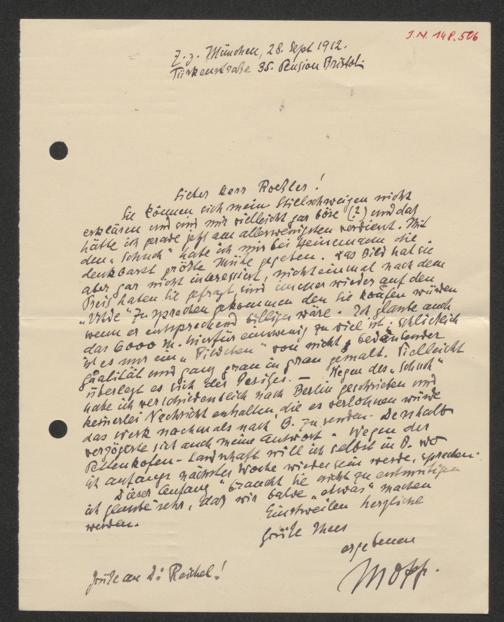 J.N. 148.506
Z. Z. München, 28. Sept 1912.
Türkenstraße 35. Pension Bristol.
Lieber Herr Roessler!
Sie können sich mein Stillschweigen nicht
erklären und sind mir vielleicht gar böse (?) und das
hätte ich gerade jetzt am allerwenigsten verdient. Mit
dem „Schuch" habe ich mir bei Heinemann die
denkbarst größte Mühe gegeben. Das Bild hat sie
aber gar nicht interessiert, nicht einmal nach dem
Preis haben sie gefragt und immer wieder auf den
„Uhde" zu sprechen gekommen den sie kaufen würden
wenn er entsprechend billiger wäre. Ich glaube auch
das 6000 M. hierfür ein wenig zu viel ist; schließlich
ist es nur ein „Bildchen" von nicht bedeutender
Qualität und ganz grau in grau gemalt. Vielleicht
überlegt es sich der Besitzer. — Wegen des „Schuch"
habe ich verschiedentlich nach Berlin geschrieben und
keinerlei Nachricht erhalten, die es verlohnen würde
das Werk nochmals nach B. zu senden. Deshalb
verzögerte sich auch meine Antwort. Wegen der
Landschaft will ich selbst in B. wo
ich anfangs nächster Woche wieder sein werde, sprechen.
Dieser „Anfang" braucht Sie nicht zu entmutigen
ich glaube sehr, daß wir bald „etwas" machen
werden.
Einstweilen herzliche
Grüße Ihres
ergebenen
Mopp.
Grüße an Dr. Reichel!